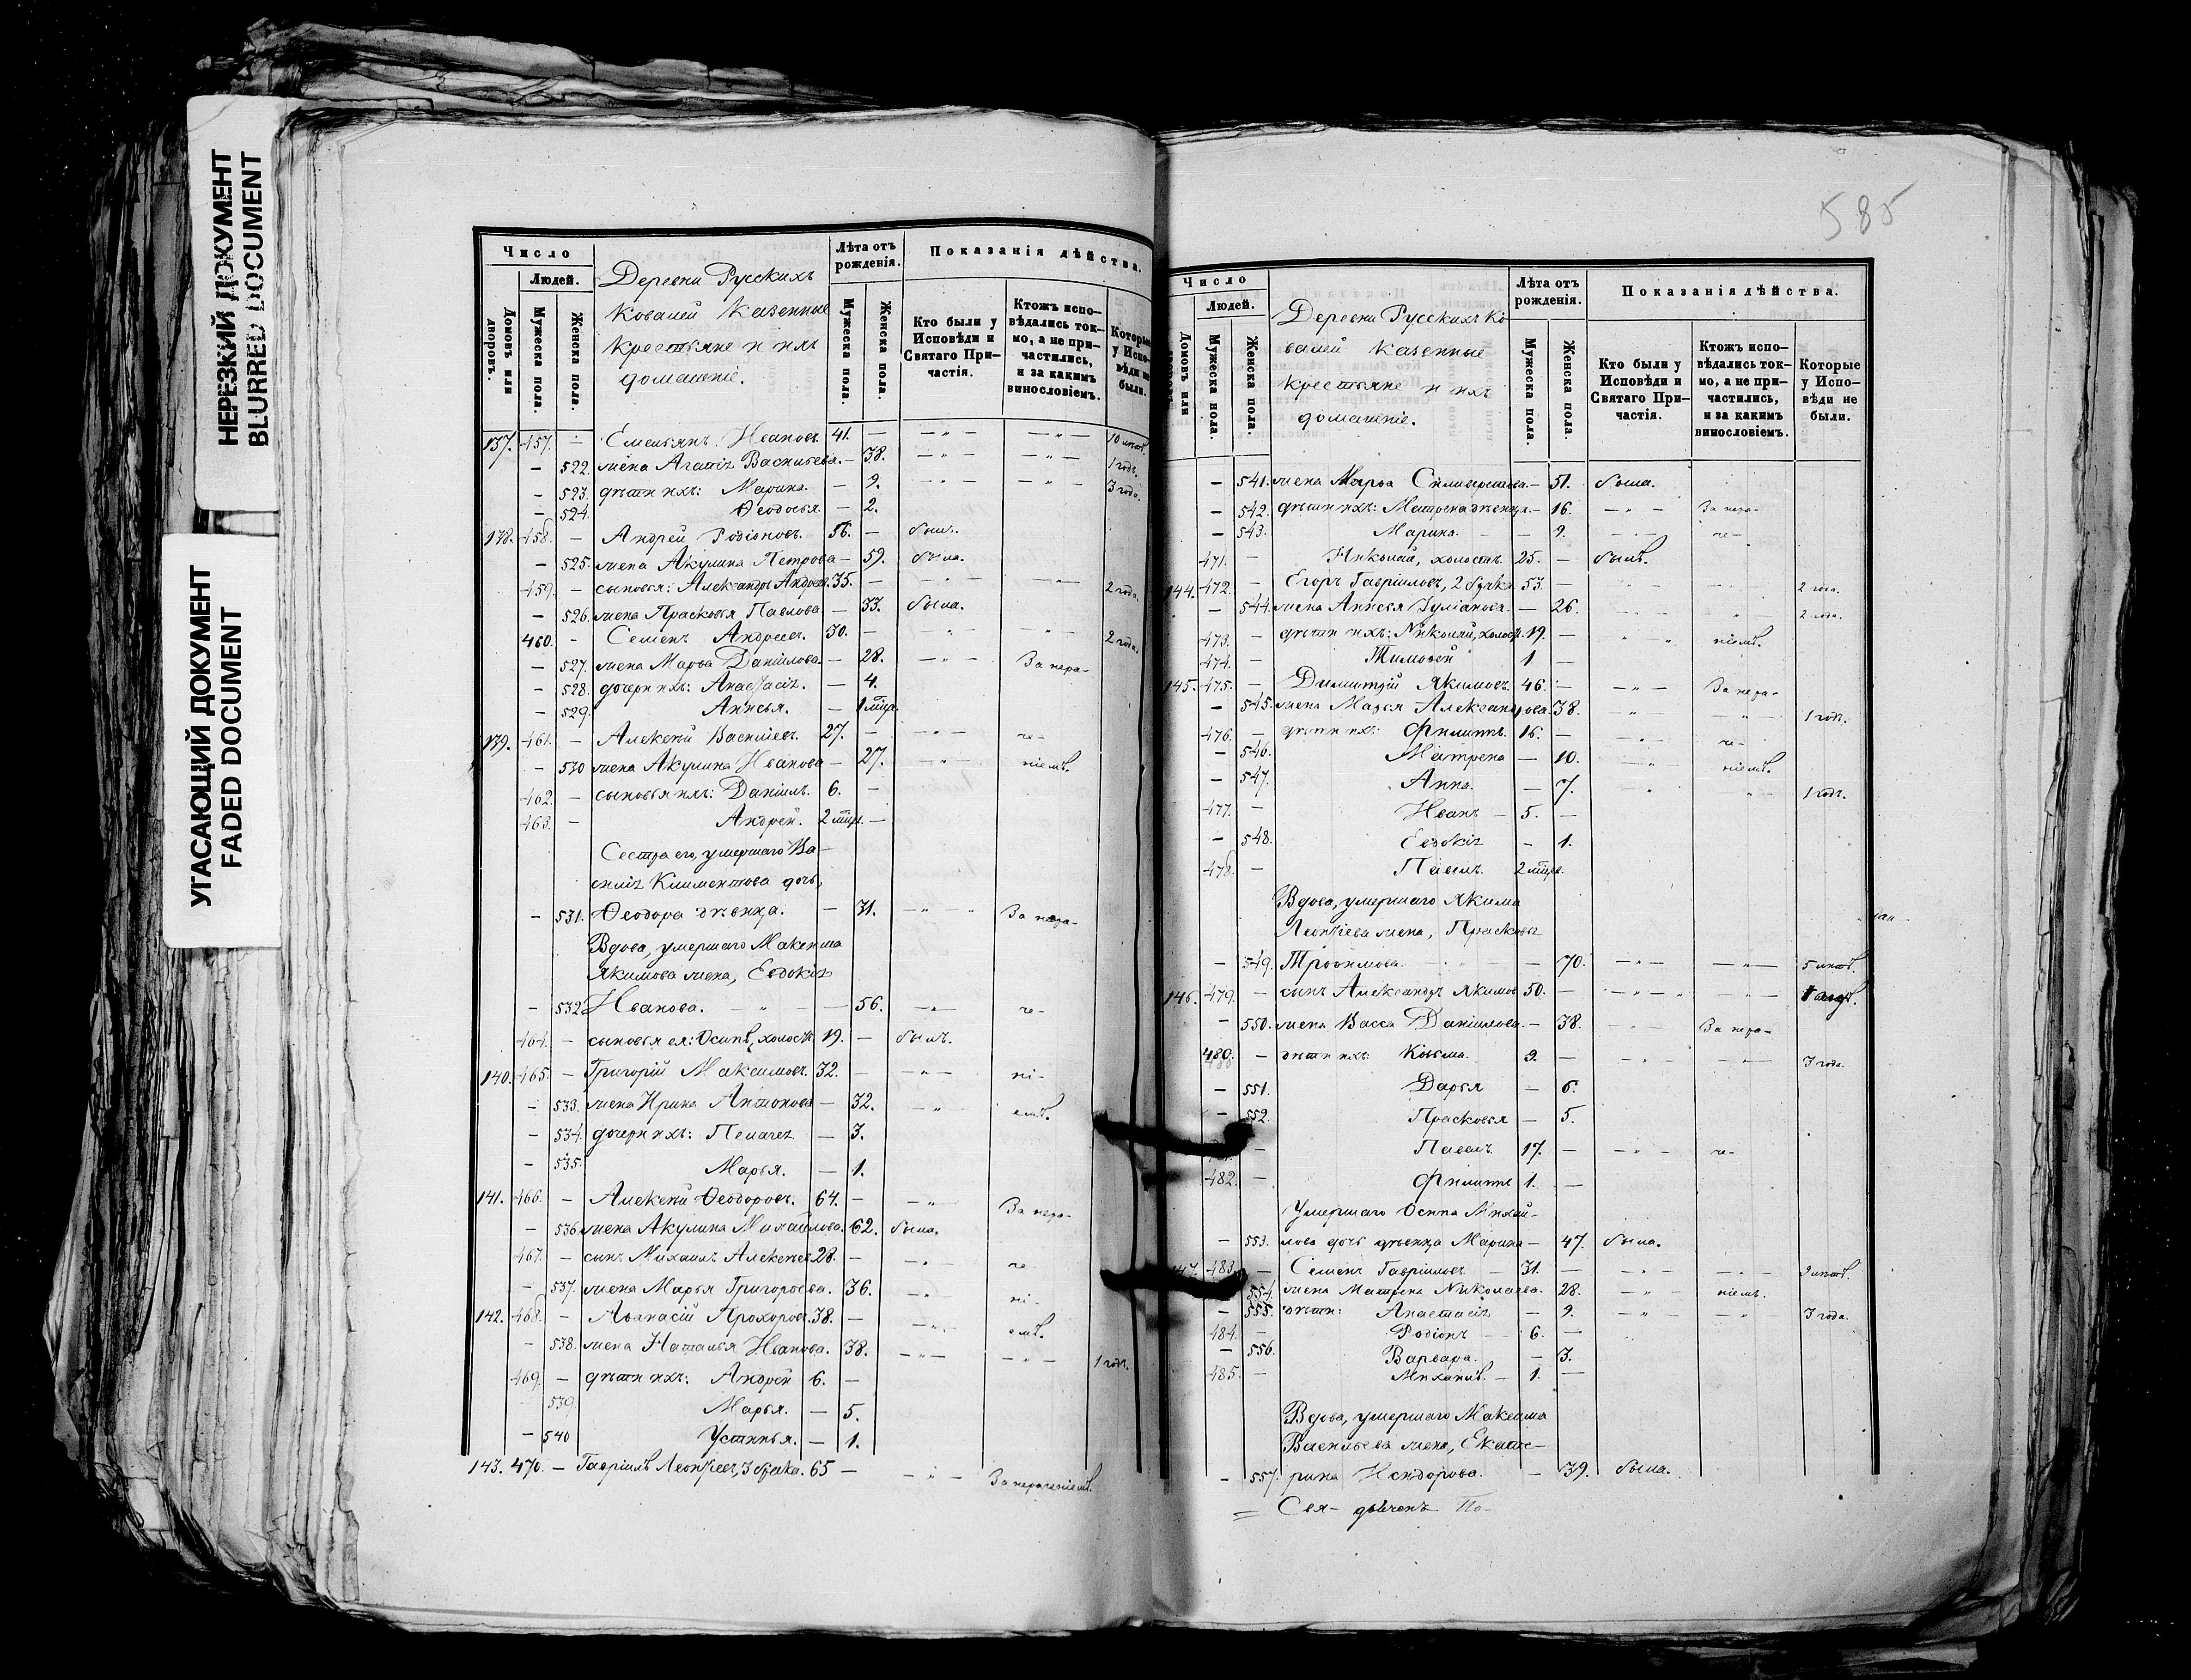 НЕРЕЗКИЙ ДОКУМЕНТ
BLURRED DOCUMENT
УГАСАЮЩИЙ ДОКУМЕНТ
FADED DOCUMENT
Число
Людей.
Домовъ или дворовъ.
Мужеска пола.
Женска пола.
Деревни Русскихъ
Ковалей казенные
крестьяне и ихъ
домашніе.
Лѣта отъ рожденія.
Мужеска пола.
Женска пола.
Показанія дѣйства.
Кто были у Исповѣди и Святаго Причастія.
Ктожъ исповѣдались токмо, а не причастились, и за какимъ винословіемъ.
Которые у Исповѣди не были.
137. 457. — Емельянъ Ивановъ. 41. — —"— —"— 10 лѣтъ.
— 522. жена Агапія Васильева. — 38. —"— —"— 1 годъ.
— 523. дѣти ихъ: Марина. — 9. —"— —"— 3 года.
— 524. Ѳеодосья — 2.
138. 458. — Андрей Родіоновъ. 56. — былъ.
— 525. жена Акулина Петрова — 59. была.
459. — сыновья: Александръ Андреев. 35. — —"— —"— 2 года.
— 526. жена Прасковья Павлова — 33. была.
460. — Семенъ Андреевъ. 30. — " —"— 2 года.
— 527. жена Марѳа Даніилова. — 28. —"— За нера-
— 528. дочери ихъ: Анастасія. — 4.
— 529. Анисья. — 1 мѣся.
139. 461. — Алексѣй Васильевъ. 27. — —"— че-
— 530 жена Акулина Иванова — 27. —"— ніемъ.
462. — сыновья ихъ: Даніилъ. 6. —
463. — Андрей. 2 мѣся. —
Сестра его, умершаго Ва-
силія Климентова дочь,
— 531. Ѳеодора дѣвица. — 31. —"— За нера-
Вдова, умершаго Максима
Якимова жена, Евдокія
— 532 Иванова. — " — 56. —"— че-
464. — сыновья ея: Осипъ, холостъ. 19. — былъ.
140. 465. — Григорій Максимовъ. 32. — —"— ні-
— 533. жена Ирина Антонова — 32. —"— емъ.
— 534. дочери ихъ: Пелагея — 3.
— 535. Марья. — 1.
141. 466. — Алексѣй Ѳеодоровъ. 64. — —"— За нера-
— 536. жена Акулина Михайлова. 62. была.
467. — сынъ Михаилъ Алексѣев 28. — —"— че
— 537. жена Марья Григорьева. 36. —"— ні-
142. 468. — Аѳанасій Прохоров. 38. — —"— емъ.
— 538. жена Наталья Иванова. 38. —"— —"— 1 годъ.
469. — дѣти ихъ: Андрей 6. —
539. Марья. — 5.
— 540 Устинья. — 1.
143. 470. — Гавріилъ Леонтьев, 3 брака. 65 — —"— За нераченіемъ.
585
Число
Людей.
Домовъ или
Мужеска пола.
Женска пола.
Деревни Русскихъ Ко
валей казенные
крестьяне и ихъ
домашніе.
Лѣта отъ рожденія.
Мужеска пола.
Женска пола.
Показанія дѣйства.
Кто были у Исповѣди и Святаго Причастія.
Ктожъ исповѣдались токмо, а не причастились, и за какимъ винословіемъ.
Которые у Исповѣди не были.
— 541. жена Марѳа Силиверстова. — 51. была.
— 542. дѣти ихъ: Матрена дѣвица. — 16. —"— За нера-
— 543. Марина. — 9. —"— че-
471. Николай, холостъ. 25. — былъ.
144. 472. — Егоръ Гавріиловъ, 2 брака 53. — —"— —"— 2 года.
— 544. жена Анисья Іуліанова. — 26. " 2 года.
473. — дѣти ихъ: Николай, холост. 19. — —"— ніемъ.
474. — Тимоѳей 1 —
145. 475. — Димитрій Якимовъ. 46. — —"— За нера-
— 545. жена Марья Александрова. 38. —"— —"— 1 годъ.
476. — дѣти ихъ: Филиппъ. 16. — —"— че-
— 546. Матрена — 10. —"— ніемъ.
— 547. Анна. — 7. " " 1 годъ.
477. — Иванъ — 5. —
— 548. Евдокія — 1.
478. — Павелъ. 2 мѣся.
Вдова, умершаго Якима
Леонтіева жена, Прасковья
— 549. Трофимова. — 70. —"— —"— 5 лѣтъ.
146. 479. — сынъ Александръ Якимов 50. — —"— —"—
— 550. жена Васса Даніилова. — 38. —"— За нера-
480. — дѣти ихъ: Козьма. 9. — —"— —"— 3 года.
— 551. Дарья — 6.
— 552. Прасковья — 5.
— Павелъ. 17. — —"— че-
482. — Филиппъ 1. —
Умершаго Осипа Михай-
— 553. лова дочь дѣвица Марина — 47. была.
147. 483. — Семенъ Гавріиловъ 31. — —"— —"— 9 лѣтъ.
554. жена Матрена Николаева. 28. —"— ніемъ.
— 555. дѣти: Анастасія — 9. " —"— 3 года.
484. — Родіонъ 6. —
— 556. Варвара. — 3.
485. — Михаилъ. — 1. —
Вдова, умершаго Максима
Васильева жена, Екате-
— 557. рина Исидорова. — 39. была.